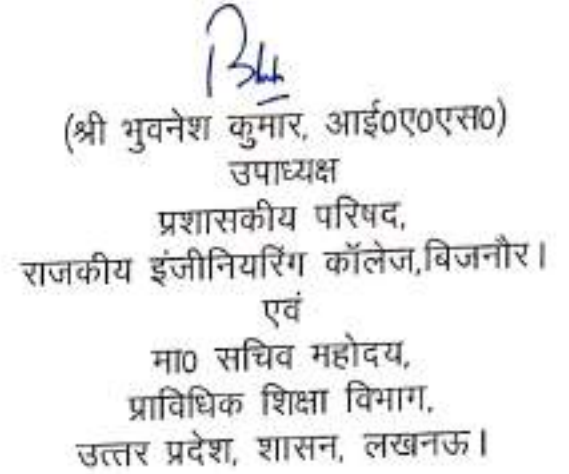 (श्री भुवनेश कुमार, आई0ए0एस0)
उपाध्यक्ष
प्रशासकीय परिषद,
राजकीय इंजीनियरिंग कॉलेज,बिजनौर।
एवं
मा0 सचिव महोदय,
प्राविधिक शिक्षा विभाग,
उत्तर प्रदेश, शासन, लखनऊ।